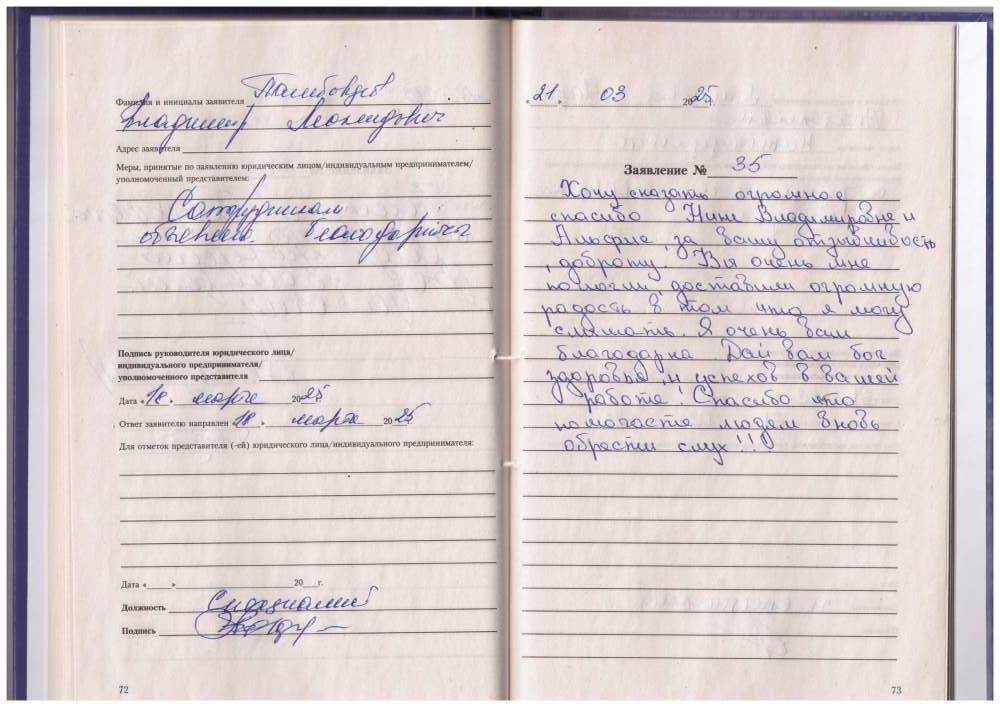 Фамилия и инициалы заявителя
Владимир Леонидович
Адрес заявителя
Меры, принятые по заявлению юридическим лицом/индивидуальным предпринимателем/
уполномоченный представителем:
Сотрудникам
объявлена благодарность
Подпись руководителя юридического лица/
индивидуального предпринимателя/
уполномоченного представителя
Дата «18» марта 2025 г.
Ответ заявителю направлен 18 » марта 2025
Для отметок представителя (-ей) юридического лица/индивидуального предпринимателя:
Дата «____» ____ 20___г.
Должность
Подпись
72
«21» 03 2025 г.
Заявление № 35
Хочу сказать огромное
спасибо Нине Владимировне и
Альфие, за вашу отзывчивость
, доброту. Вы очень мне
помогли, доставили огромную
радость в том что я могу
слышать. Я очень вам
благодарна. Дай вам бог
здоровья, и успехов в вашей
работе! Спасибо что
помогаете людям вновь
обрести слух!!!
73